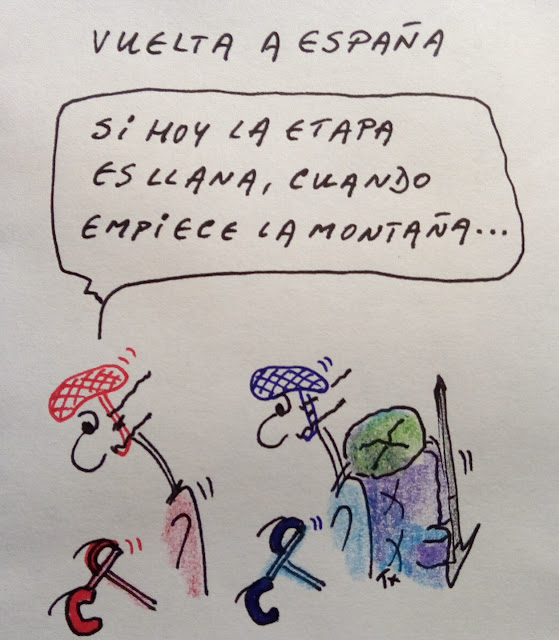 VUELTA A ESPAÑA
SI HOY LA ETAPA
ES LLANA, CUANDO
EMPIECE LA MONTAÑA...
Tx